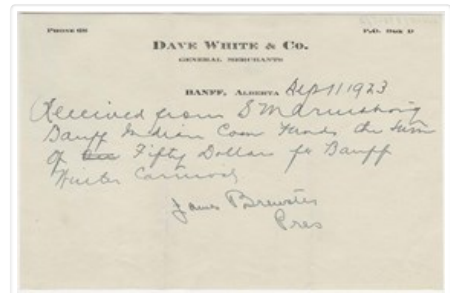 PHONE 68
P.O. BOX D
DAVE WHITE & CO.
GENERAL MERCHANTS
BANFF, ALBERTA Sep 11 1923
Received from S M Armstrong
Banff Indian Com Funds the sum
of Fifty Dollars for Banff
Winter Carnival
James Brewster
Pres